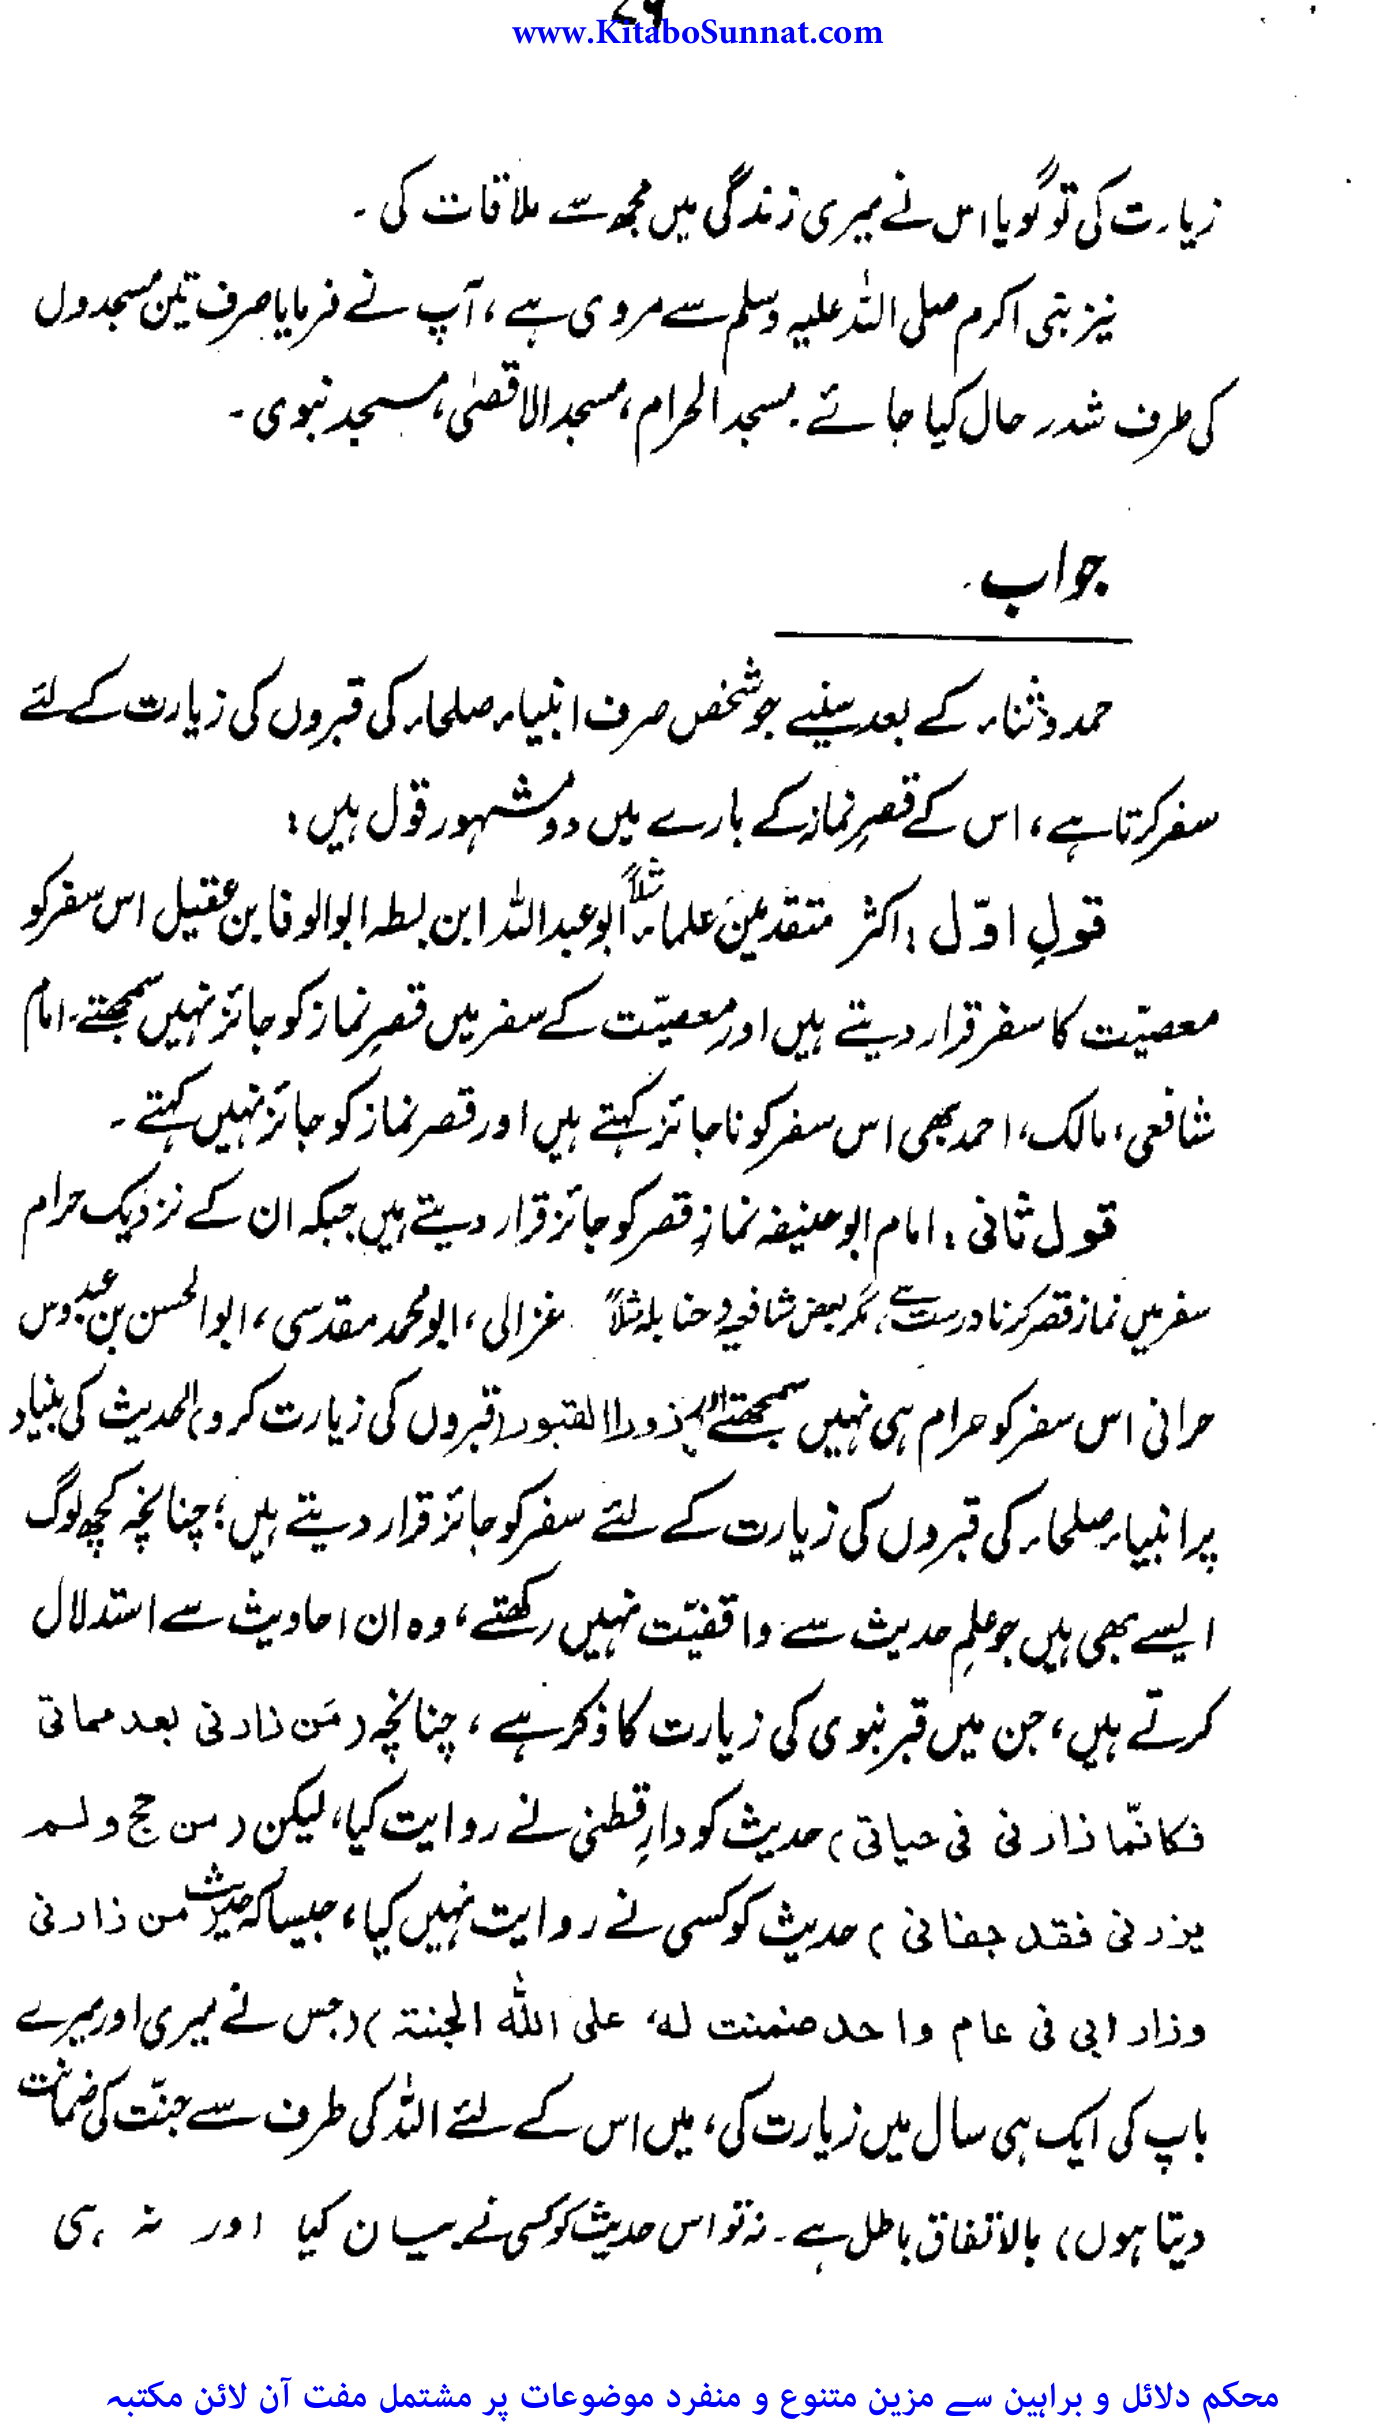 www.KitaboSunnat.com
زیارت کی تو گویا اس نے میری زندگی میں مجھ سے ملاقات کی ۔
نیز نبی اکرم صلی اللہ علیہ وسلم سے مروی ہے، آپ نے فرمایا صرف تین مسجدوں
کی طرف شد رحال کیا جائے ۔ مسجد الحرام، مسجد الاقصیٰ، مسجد نبوی ۔
جواب ۔
حمد و ثناء کے بعد سنیے جو شخص صرف انبیاء صلحاء کی قبروں کی زیارت کے لئے
سفر کرتا ہے، اس کے قصرِ نماز کے بارے میں دو مشہور قول ہیں :
قولِ اوّل : اکثر متقدمین علماء مثلاً ابو عبد اللہ ابن بطہ ابو الوفا بن عقیل اس سفر کو
معصیّت کا سفر قرار دیتے ہیں اور معصیّت کے سفر میں قصرِ نماز کو جائز نہیں سمجھتے ۔ امام
شافعی، مالک، احمد بھی اس سفر کو ناجائز کہتے ہیں اور قصر نماز کو جائز نہیں کہتے ۔
قول ثانی : امام ابو حنیفہ نمازِ قصر کو جائز قرار دیتے ہیں جبکہ ان کے نزدیک حرام
سفر میں نماز قصر کرنا درست ہے، مگر بعض شافعیہ و حنابلہ مثلاً غزالی، ابو محمد مقدسی، ابو الحسن بن عبدوس
حرانی اس سفر کو حرام ہی نہیں سمجھتے اور زوروا القبور (قبروں کی زیارت کرو) الحدیث کی بنیاد
پر انبیاء صلحاء کی قبروں کی زیارت کے لئے سفر کو جائز قرار دیتے ہیں؛ چنانچہ کچھ لوگ
ایسے بھی ہیں جو علمِ حدیث سے واقفیّت نہیں رکھتے، وہ ان احادیث سے استدلال
کرتے ہیں، جن میں قبرِ نبوی کی زیارت کا ذکر ہے، چنانچہ (مَن زارنی بعد مماتی
فکانّما زارنی فی حیاتی) حدیث کو دارِ قطنی نے روایت کیا، لیکن (من حج ولم
یزرنی فقد جفانی) حدیث کو کسی نے روایت نہیں کیا، جیسا کہ حدیث من زارنی
وزار ابی فی عام واحد ضمنت لہ، علی اللہ الجنۃ) (جس نے میری اور میرے
باپ کی ایک ہی سال میں زیارت کی، میں اس کے لئے اللہ کی طرف سے جنّت کی ضمانت
دیتا ہوں) بالاتفاق باطل ہے ۔ نہ تو اس حدیث کو کسی نے بیان کیا اور نہ ہی
محکم دلائل و براہین سے مزین متنوع و منفرد موضوعات پر مشتمل مفت آن لائن مکتبہ